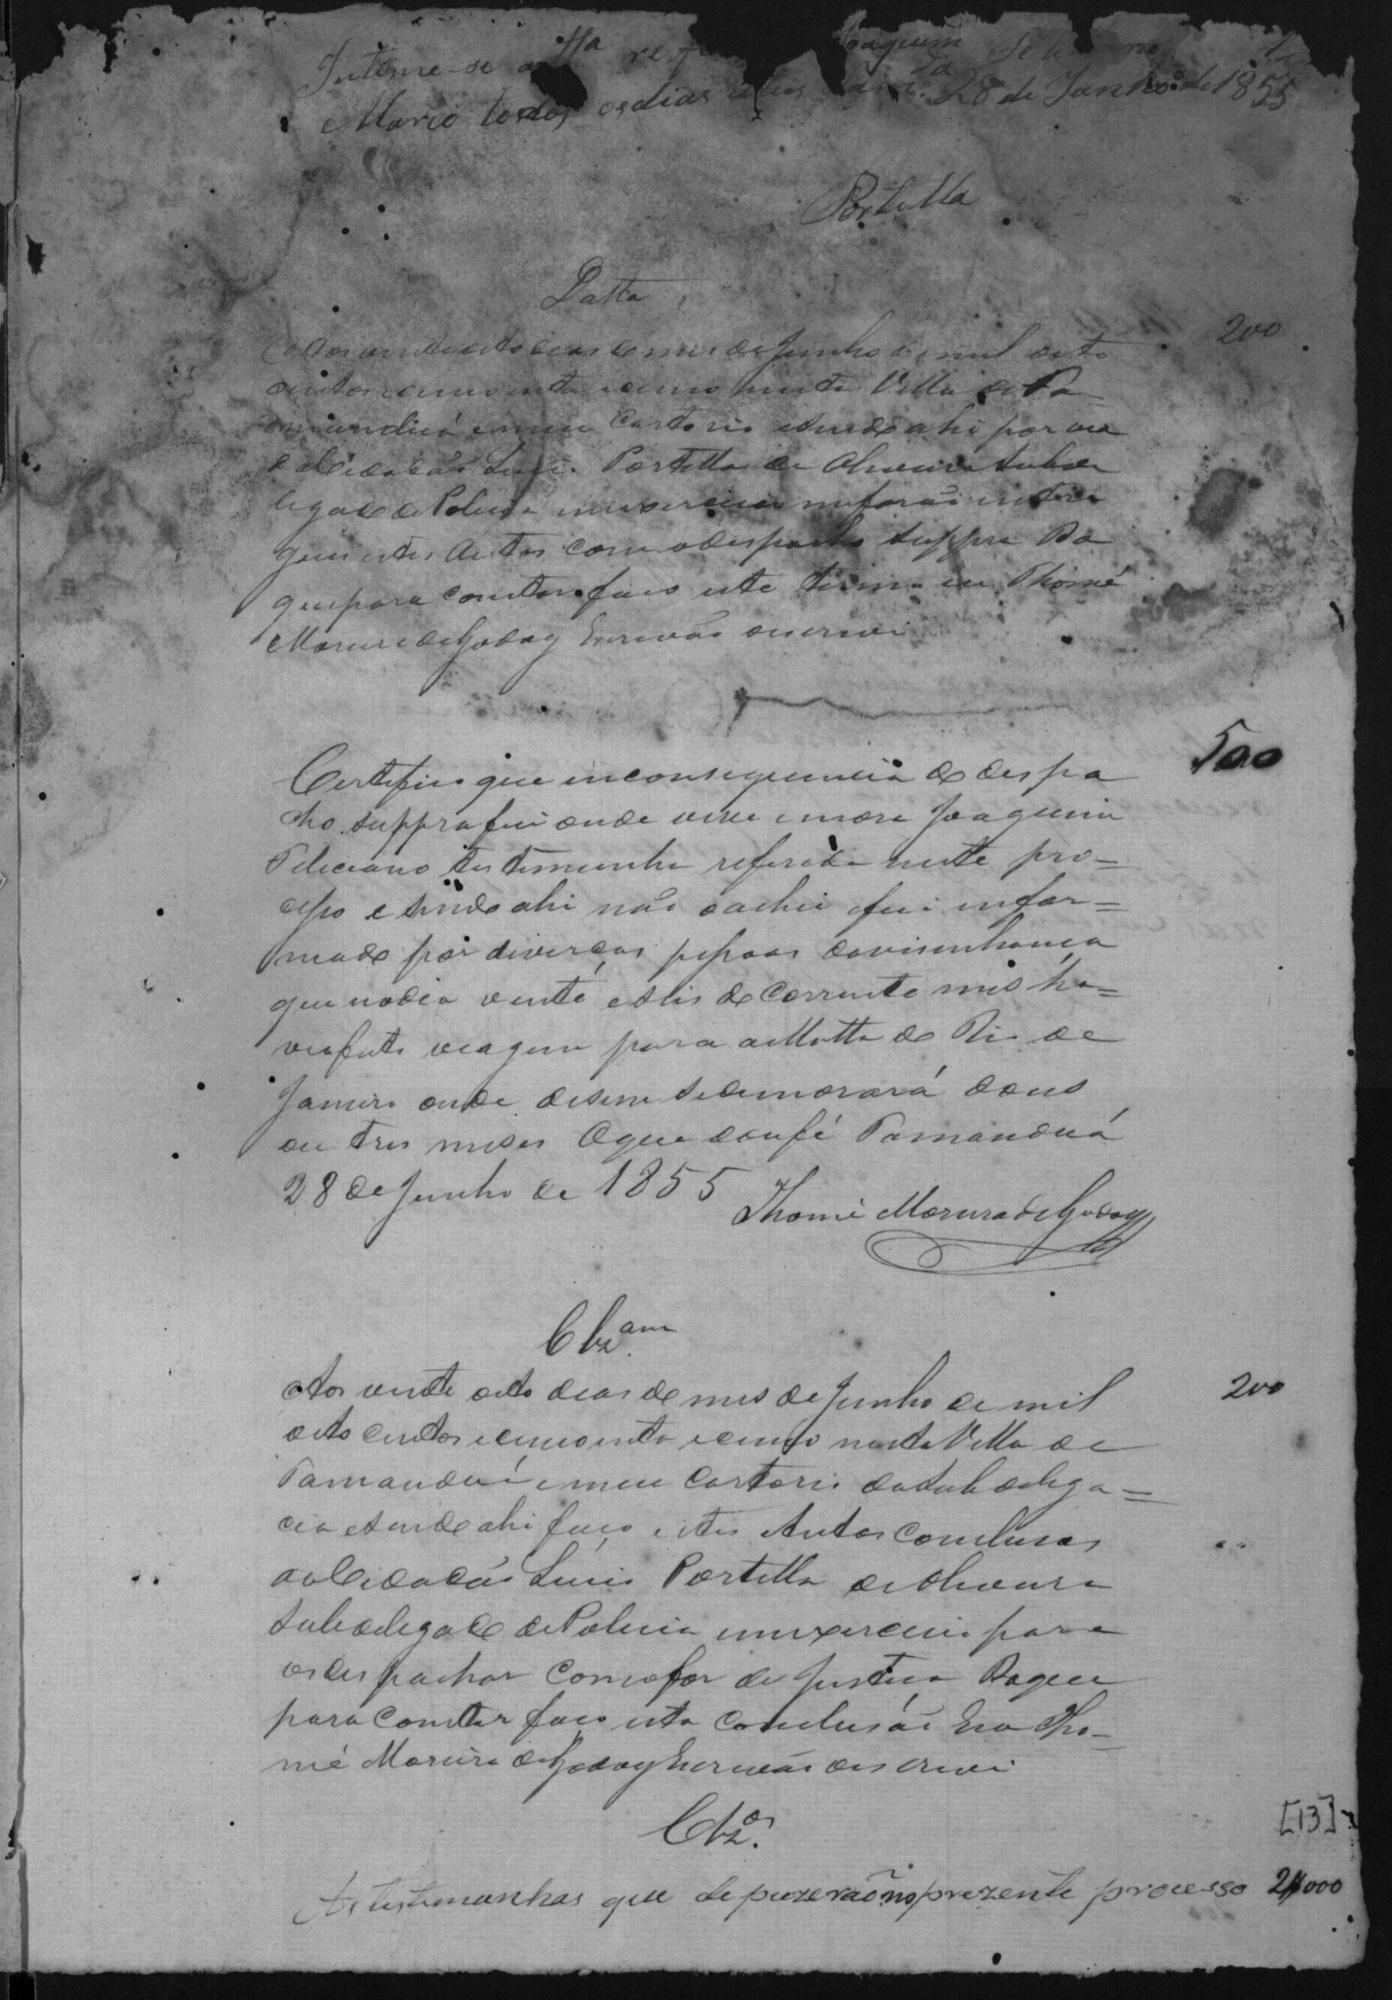 Intime-se a tta ref Joaquim
Marco todos os dias 28 de Junho de 1855
Portella
Datta
200
Aos vinte oito dias do mes de Junho de mil oito
centos e cincoenta e cinco nesta Villa de Pa
manduá em meu Cartorio e sendo ahi por ou
do Cidadão Luis Portella de Oliveira Subde
legado de Policia em exercicio me forão entre
gues estes Autos com o despacho suppra Do
que para constar faço este termo eu Thomé
Moreira de Godoy Escrivão o escrevi
500
Certifico que em consequencia do despa
cho suppra fui onde vive e mora Joaquim
Feliciano testemunha referida neste pro=
cesso e sendo ahi não o achei e fui infor=
mado por diverças pessoas da visinhança
que no dia vente e seis do Corrente mes ha=
via feito viagem para a Matta do Rio de
Janeiro onde disem se demorará dous
ou tres meses O que dou fé Pamanduá
28 de Junho de 1855
Thomé Moreira de Godoy
Clzam
200
Aos vinte oito dias do mes de Junho de mil
oito centos e cincoenta e cinco nesta Villa de
Pamanduá em meu Cartorio da Subdelega=
cia e sendo ahi faço estes Autos Conclusos
ao Cidadão Luis Portella de Oliveira
Subdelegado de Policia em exercicio para
os despachar como for de Justiça Do que
para constar faço esta Conclusão Eu Tho=
mé Moreira de Godoy Escrivão o escrevi
Clzos
[13]
As testemunhas que depuzerão no prezente processo 2$000